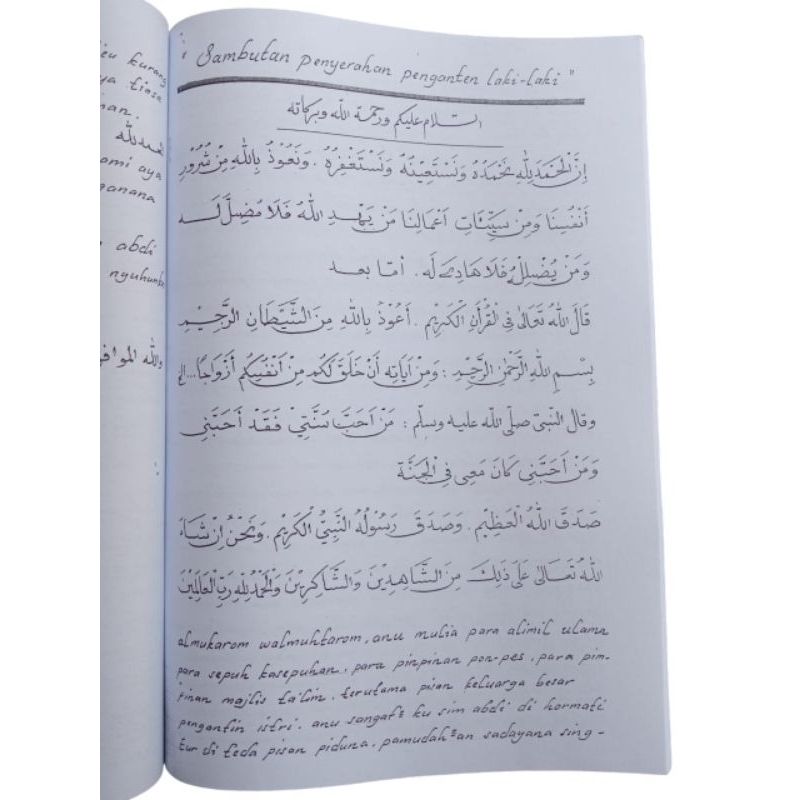 eu kurang
ya tiasa
an.
omi aya
anana
abdi
nguhunke
والله الموافق
" Sambutan penyerahan penganten laki-laki "
السلام عليكم ورحمة الله وبركاته
إِنَّ الْحَمْدَ لِلّٰهِ نَحْمَدُهُ وَنَسْتَعِيْنُهُ وَنَسْتَغْفِرُهُ . وَنَعُوْذُ بِاللّٰهِ مِنْ شُرُوْرِ
أَنْفُسِنَا وَمِنْ سَيِّئَاتِ أَعْمَالِنَا مَنْ يَهْدِ اللّٰهُ فَلَا مُضِلَّ لَهُ
وَمَنْ يُضْلِلْهُ فَلَا هَادِيَ لَه . أمّا بعد
قَالَ اللّٰهُ تَعَالٰى فِى الْقُرْأٰنِ الْكَرِيْمِ . أَعُوْذُ بِاللّٰهِ مِنَ الشَّيْطَانِ الرَّجِيْمِ
بِسْمِ اللّٰهِ الرَّحْمٰنِ الرَّحِيْمِ : وَمِنْ اٰيَاتِهِ أَنْ خَلَقَ لَكُمْ مِنْ أَنْفُسِكُمْ أَزْوَاجًا... الخ
وقال النبيّ صلّى الله عليه وسلّم : مَنْ اَحَبَّ سُنَّتِيْ فَقَدْ اَحَبَّنِى
وَمَنْ اَحَبَّنِى كَانَ مَعِى فِى الْجَنَّةِ
صَدَقَ اللّٰهُ الْعَظِيْمِ . وَصَدَقَ رَسُوْلُهُ النَّبِيُّ الْكَرِيْمِ . وَنَحْنُ إِنْ شَاءَ
اللّٰهُ تَعَالٰى عَلَى ذٰلِكَ مِنَ الشَّاهِدِيْنَ وَالشَّاكِرِيْنَ وَالْحَمْدُ لِلّٰهِ رَبِّ الْعَالَمِيْنَ
almukarom walmuhtarom, anu mulia para alimil ulama
para sepuh kasepuhan, para pinpinan pon-pes, para pim-
pinan majlis ta'lim, terutama pisan keluarga besar
pengantin istri, anu sangat² ku sim abdi di hormati
tur di teda pisan piduna, pamudah²an sadayana sing-